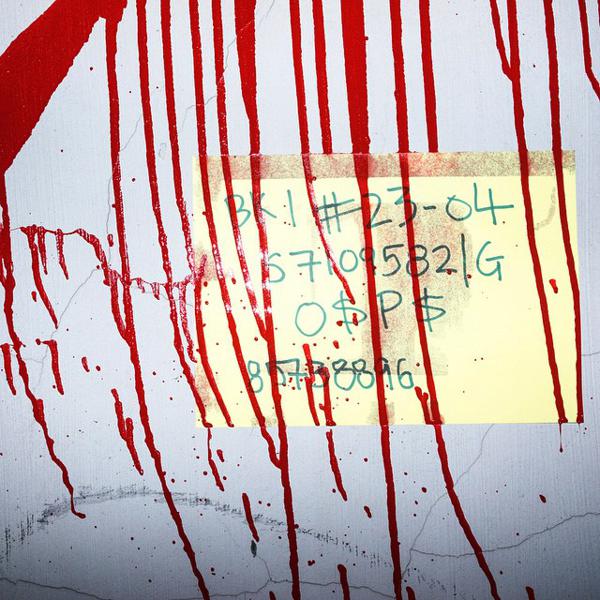 BK 1 #23-04
S7109582/G
O$P$
85738896